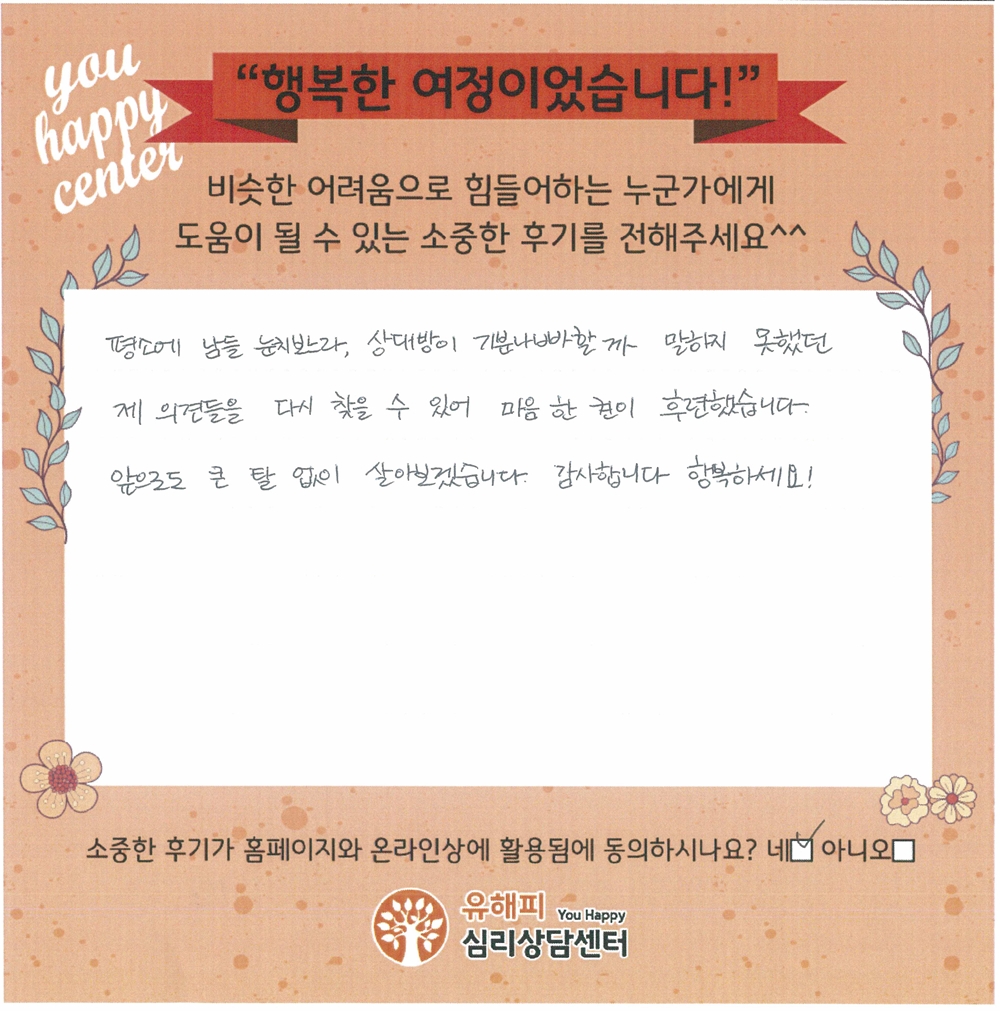 you
happy
center
“행복한 여정이었습니다!”
비슷한 어려움으로 힘들어하는 누군가에게
도움이 될 수 있는 소중한 후기를 전해주세요^^
평소에 남들 눈치보느라, 상대방이 기분나빠할까 말하지 못했던
제 의견들을 다시 찾을 수 있어 마음 한 켠이 후련했습니다.
앞으로도 큰 탈 없이 살아보겠습니다. 감사합니다 행복하세요!
소중한 후기가 홈페이지와 온라인상에 활용됨에 동의하시나요? 네☑ 아니오☐
유해피 You Happy
심리상담센터